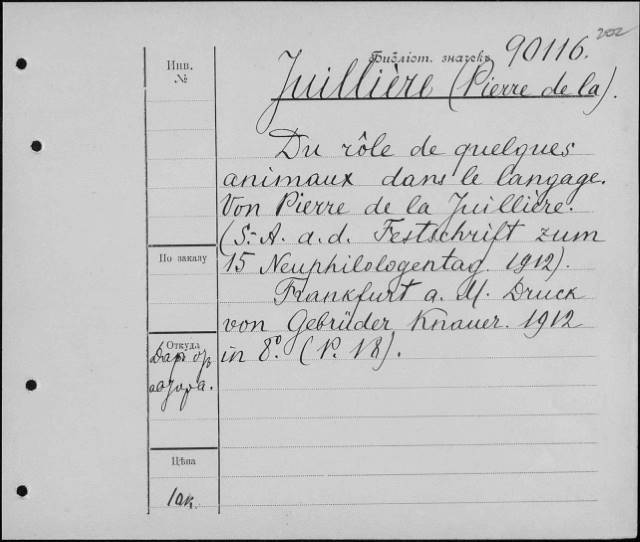 202
Библіот. значекъ 90116.
Juillière (Pierre de la).
Инв.
№
Du rôle de quelques
animaux dans le langage.
Von Pierre de la Juillière.
(S.-A. a. d. Festschrift zum
15 Neuphilologentag 1912).
Frankfurt a. M. Druck
von Gebrüder Knauer. 1912
in 8.º (P. 18).
По заказу
Откуда
Даръ
Цѣна
10к.